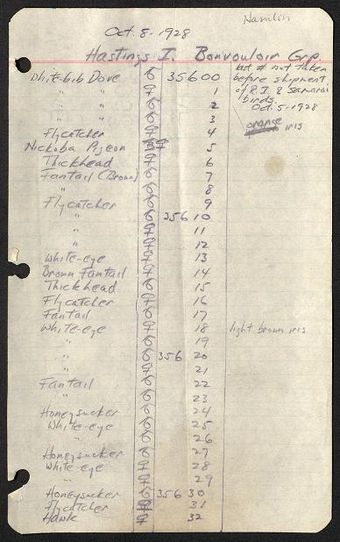 Hamlin
Oct. 8 - 1928
Hastings I. Bonvouloir Grp.
White-bib Dove ♂ 35600 but # not taken
" " 1 before shipment
" " 2 of R.I. & Samarai birds.
" " 3 Oct. 5-1928
Flycatcher 4 orange iris
Nickoba Pigeon 5
Thickhead 6
Fantail (Brown) 7
" 8
Flycatcher 9
" 35610
" 11
" 12
White-eye 13
Brown Fantail 14
Thickhead 15
Flycatcher 16
Fantail 17
White-eye 18 light brown iris
" 19
" 35620
" 21
Fantail 22
" 23
Honeysucker 24
White-eye 25
" 26
Honeysucker 27
White-eye 28
" 29
Honeysucker 35630
Flycatcher 31
Hawk 32